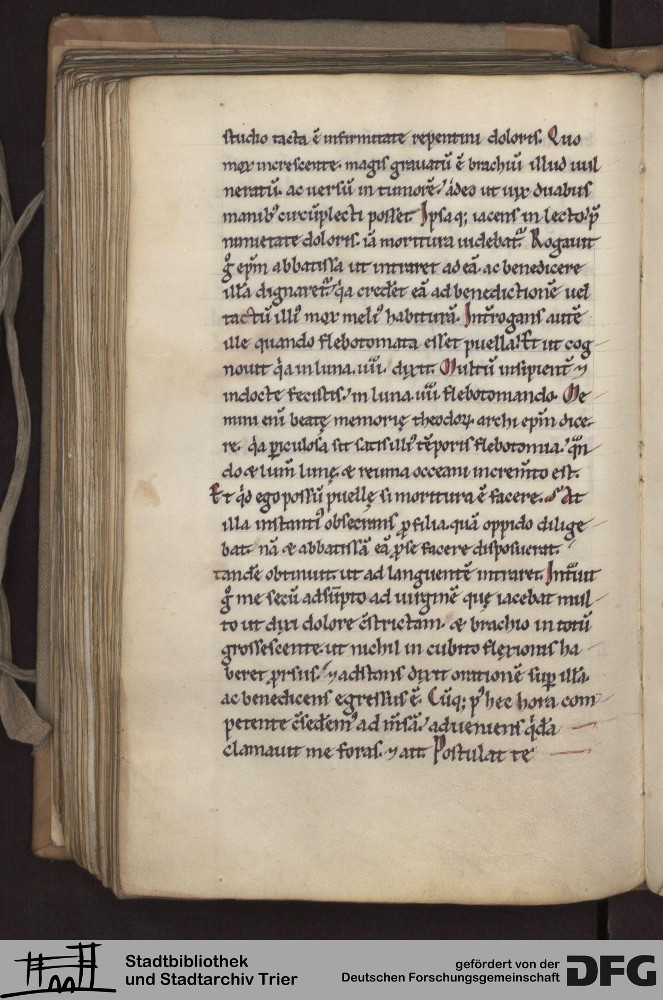 studio tacta ē infirmitate repentini doloris. Quo
mox increscente. magis grauatū ē brachiū illud uul
neratū. ac uersū in tumorē. adeo ut uix duabus
manib; circūplecti posset. Ipsaq; iacens in lecto. p̄
nimietate doloris. iā moritura uidebat᷑. Rogauit
g̊ ep̄m abbatissa ut intraret ad eā. ac benedicere
illā dignaret᷑. q̇a crederet eā ad benedictionē uel
tactū illi᷒ mox meli᷒ habiturā. Int̄rogans autē
ille quando flebotomata esset puella. Et ut cog
nouit q̇a in luna .iiii. dixit. Multū insipient̄ ⁊
indocte fecistis. in luna .iiii. flebotomando. Me
mini enī beatę memorię theodorꝝ archiep̄m dice
re. q̇a ꝑiculosa sit satis illi᷒ tēporis flebotomia. qn̄
do & lum̄ lunę. & reuma occeani increm̄to est.
Et q̇d ego possū puellę si moritura ē facere. At
illa instanti᷒ obsecrans ꝓ filia. quā oppido dilige
bat. nā & abbatissā eā ꝓ se facere disposuerat.
tandē obtinuit. ut ad languentē intraret. Intͣuit
g̊ me secū adsūpto ad uirginē quę iacebat mul
to ut dixi dolore c̄strictam. & brachio in totū
grossescente. ut nichil in cubito flexionis ha
beret ꝓrsus. ⁊ adstans dixit orationē suꝑ illā.
ac benedicens egressus ē. Cūq; p᷒ hec hora com
petente c̄sederem᷒ ad m̄sā. adueniens q̇dā
clamauit me foras. ⁊ ait. Postulat te
Stadtbibliothek
und Stadtarchiv Trier
gefördert von der
Deutschen Forschungsgemeinschaft
DFG